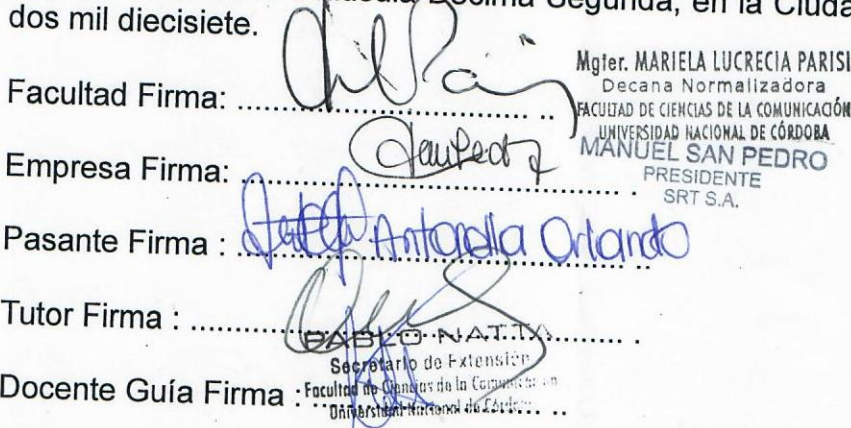 Décima Segunda, en la Ciuda
dos mil diecisiete.
Facultad Firma: ..................................................
Mgter. MARIELA LUCRECIA PARISI
Decana Normalizadora
FACULTAD DE CIENCIAS DE LA COMUNICACIÓN
UNIVERSIDAD NACIONAL DE CÓRDOBA
Empresa Firma: ..................................................
MANUEL SAN PEDRO
PRESIDENTE
SRT S.A.
Pasante Firma : Antonella Orlando
Tutor Firma : ..................................................
PABLO NATTA
Secretario de Extensión
Docente Guía Firma : Facultad de Ciencias de la Comunicación
Universidad Nacional de Córdoba